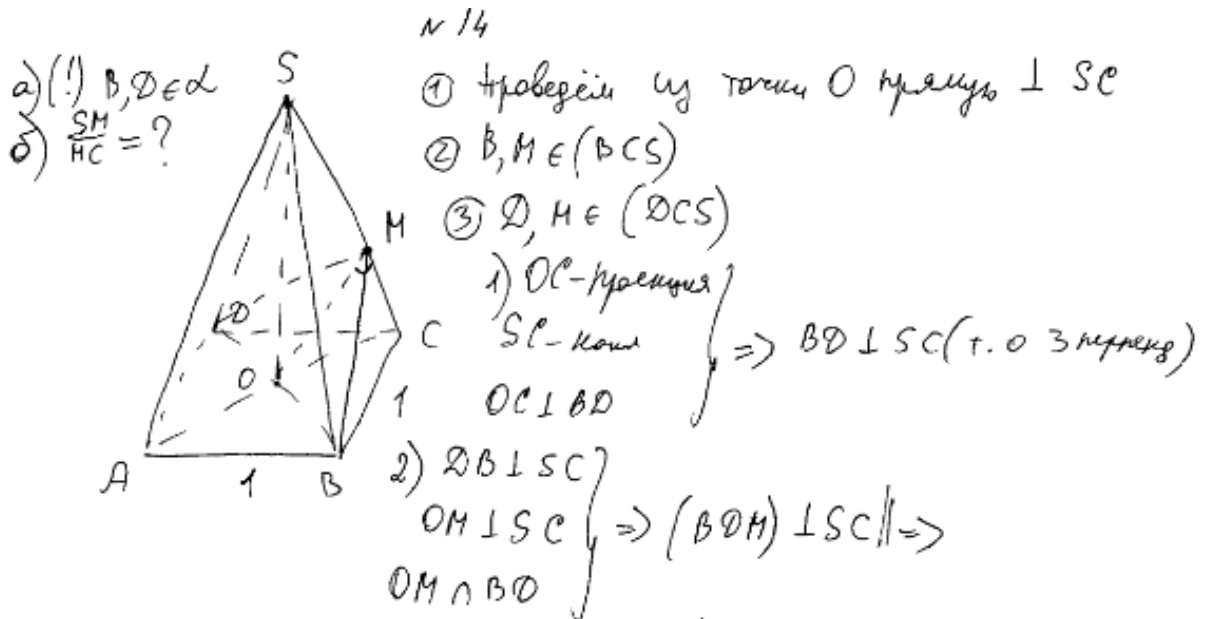 N 14
а) (!) B, D ∈ α
б) SM/MC = ?
① Проведём из точки O прямую ⊥ SC
② B, M ∈ (BCS)
③ D, M ∈ (DCS)
1) OC - проекция
SC - накл
OC ⊥ BD
} => BD ⊥ SC (т. о 3 перпенд)
2) DB ⊥ SC
OM ⊥ SC
OM ∩ BD
} => (BDM) ⊥ SC || =>
S
M
D
C
O
1
A
1
B